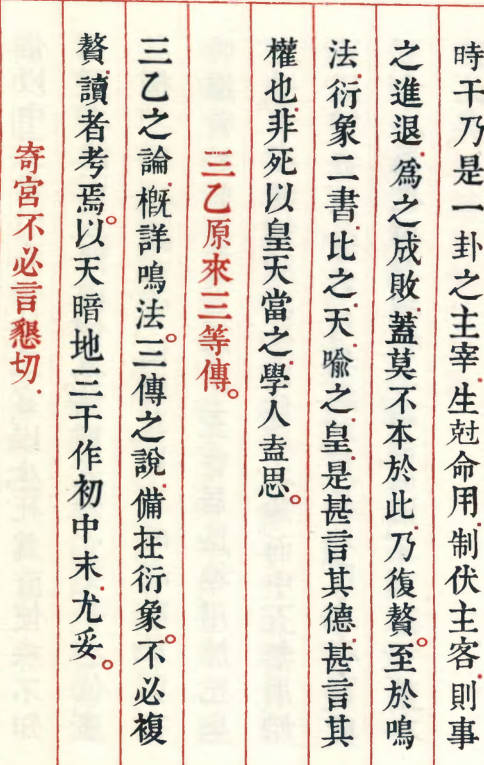 時干乃是一卦之主宰.生尅命用.制伏主客.則事
之進退.為之成敗.蓋莫不本於此.乃復贅。至於鳴
法.衍象二書.比之天.喻之皇.是甚言其德.甚言其
權也.非死以皇天當之.學人盍思。
三乙原來三等傳。
三乙之論.概詳鳴法。三傳之說.備在衍象。不必複
贅.讀者考焉。以天暗地三干作初中末.尤妥。
寄宮不必言懇切.